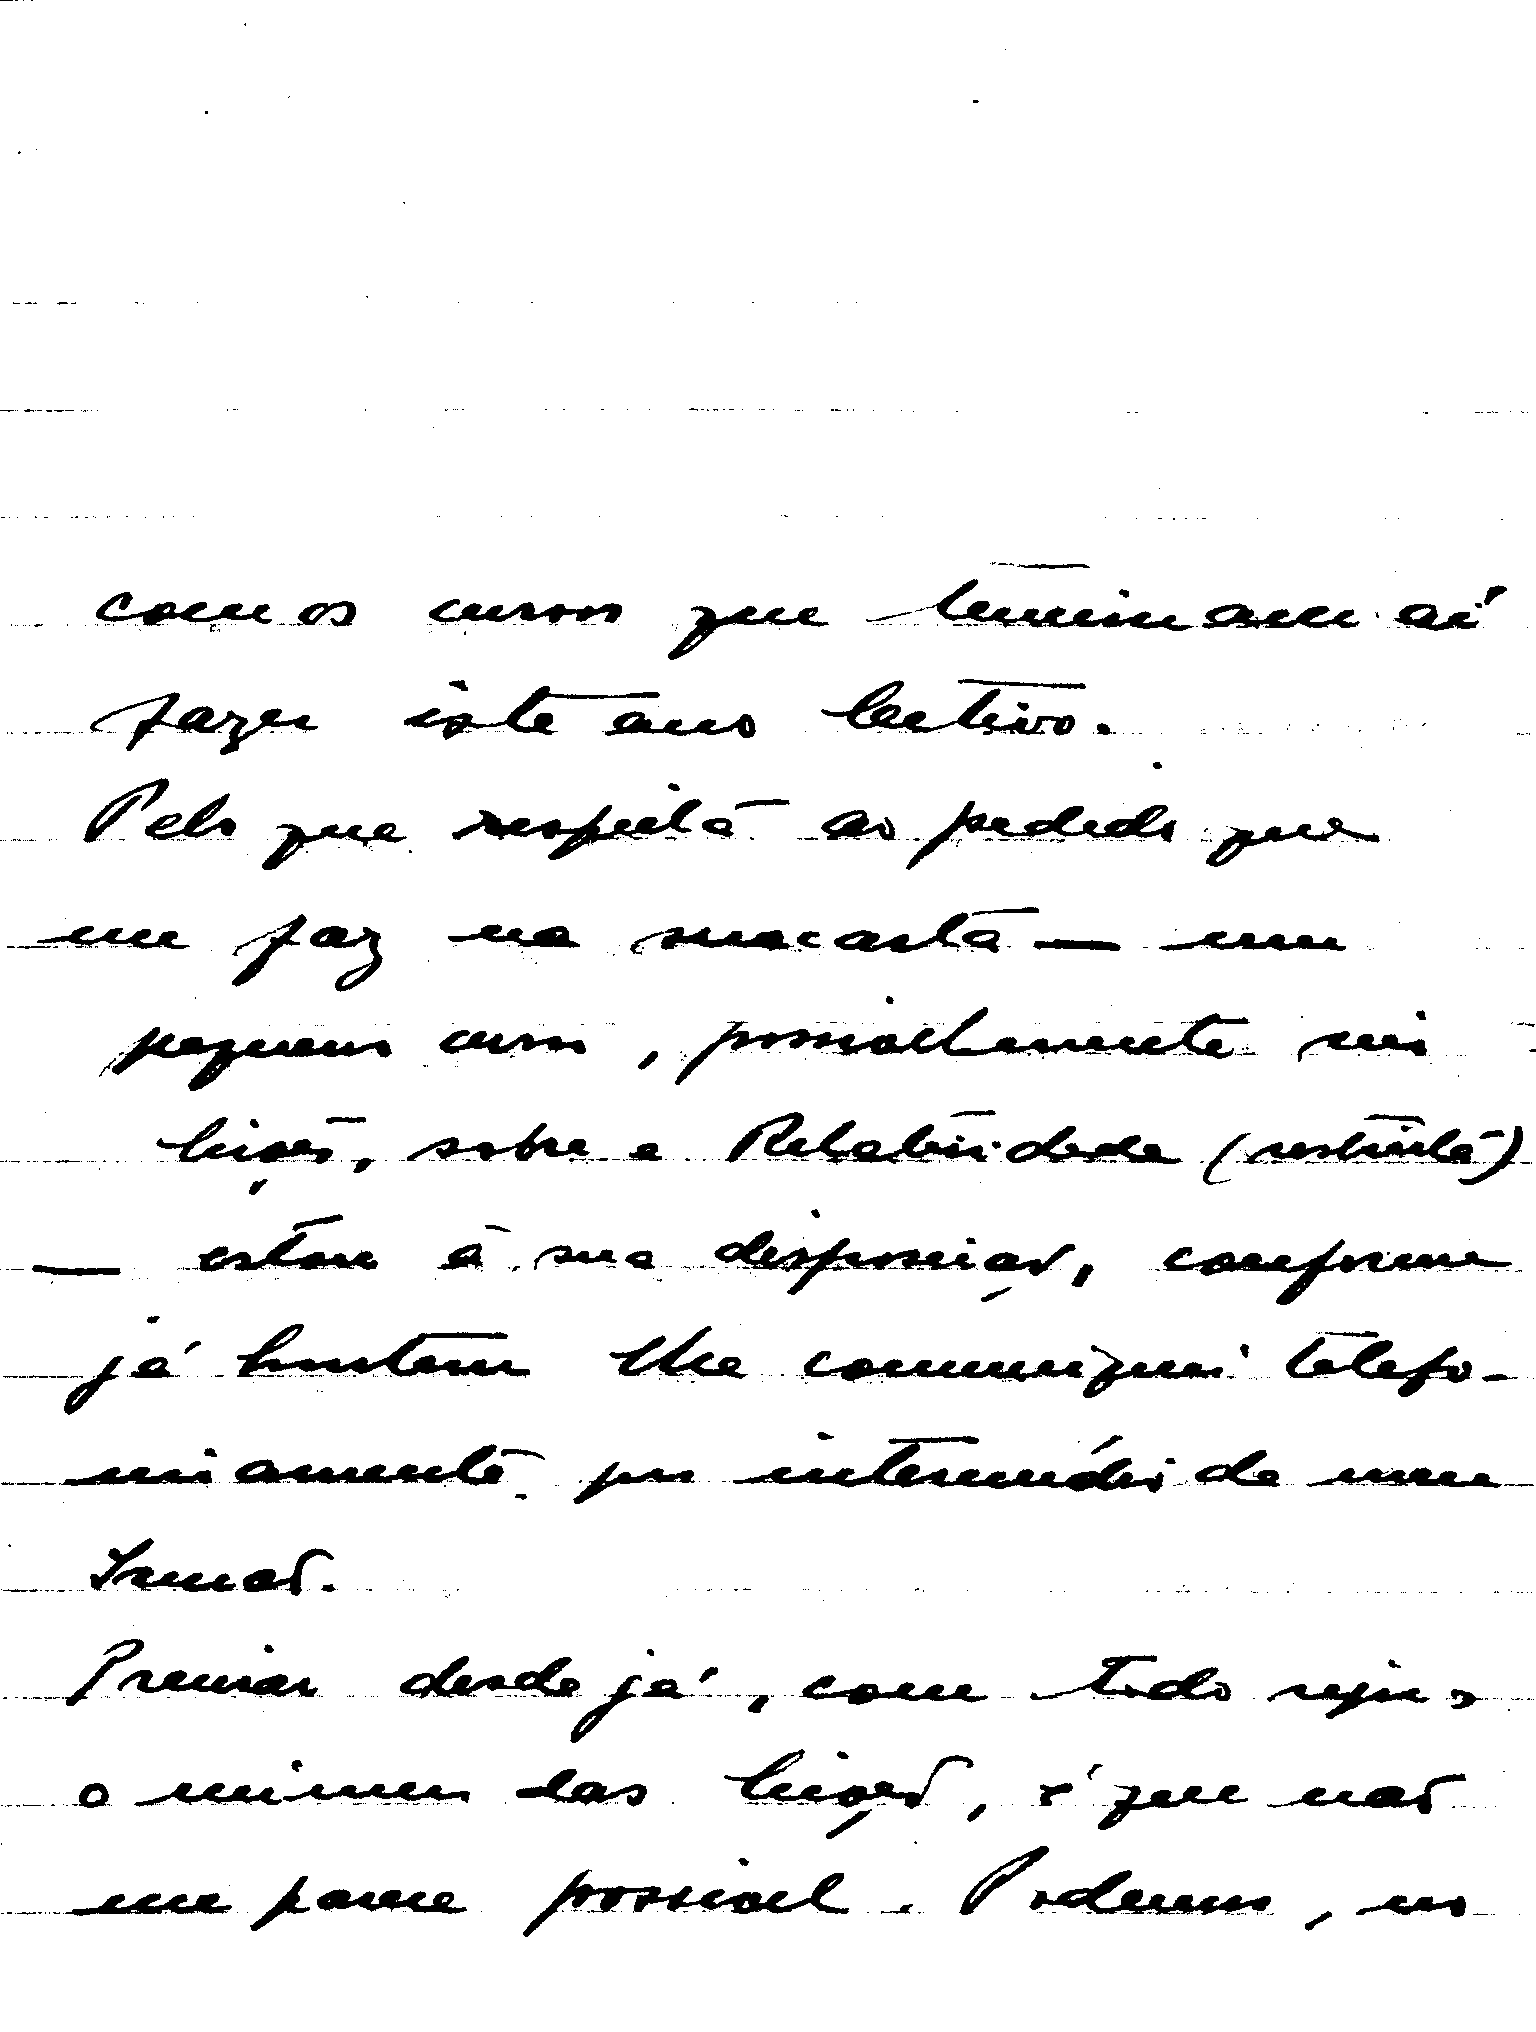 com os cursos que terminam aí
fazer êste ano lectivo.
Pelo que respeita ao pedido que
me faz na sua carta — um
pequeno curso, possivelmente seis
lições, sobre a Relatividade (restrita)
— estou à sua disposição, conforme
já hontem lhe communiquei telefo-
nicamente por intermédio de meu
Irmão.
Precisar desde já, com todo rigor,
o número das lições, é que não
me parece possível. Podemos, no